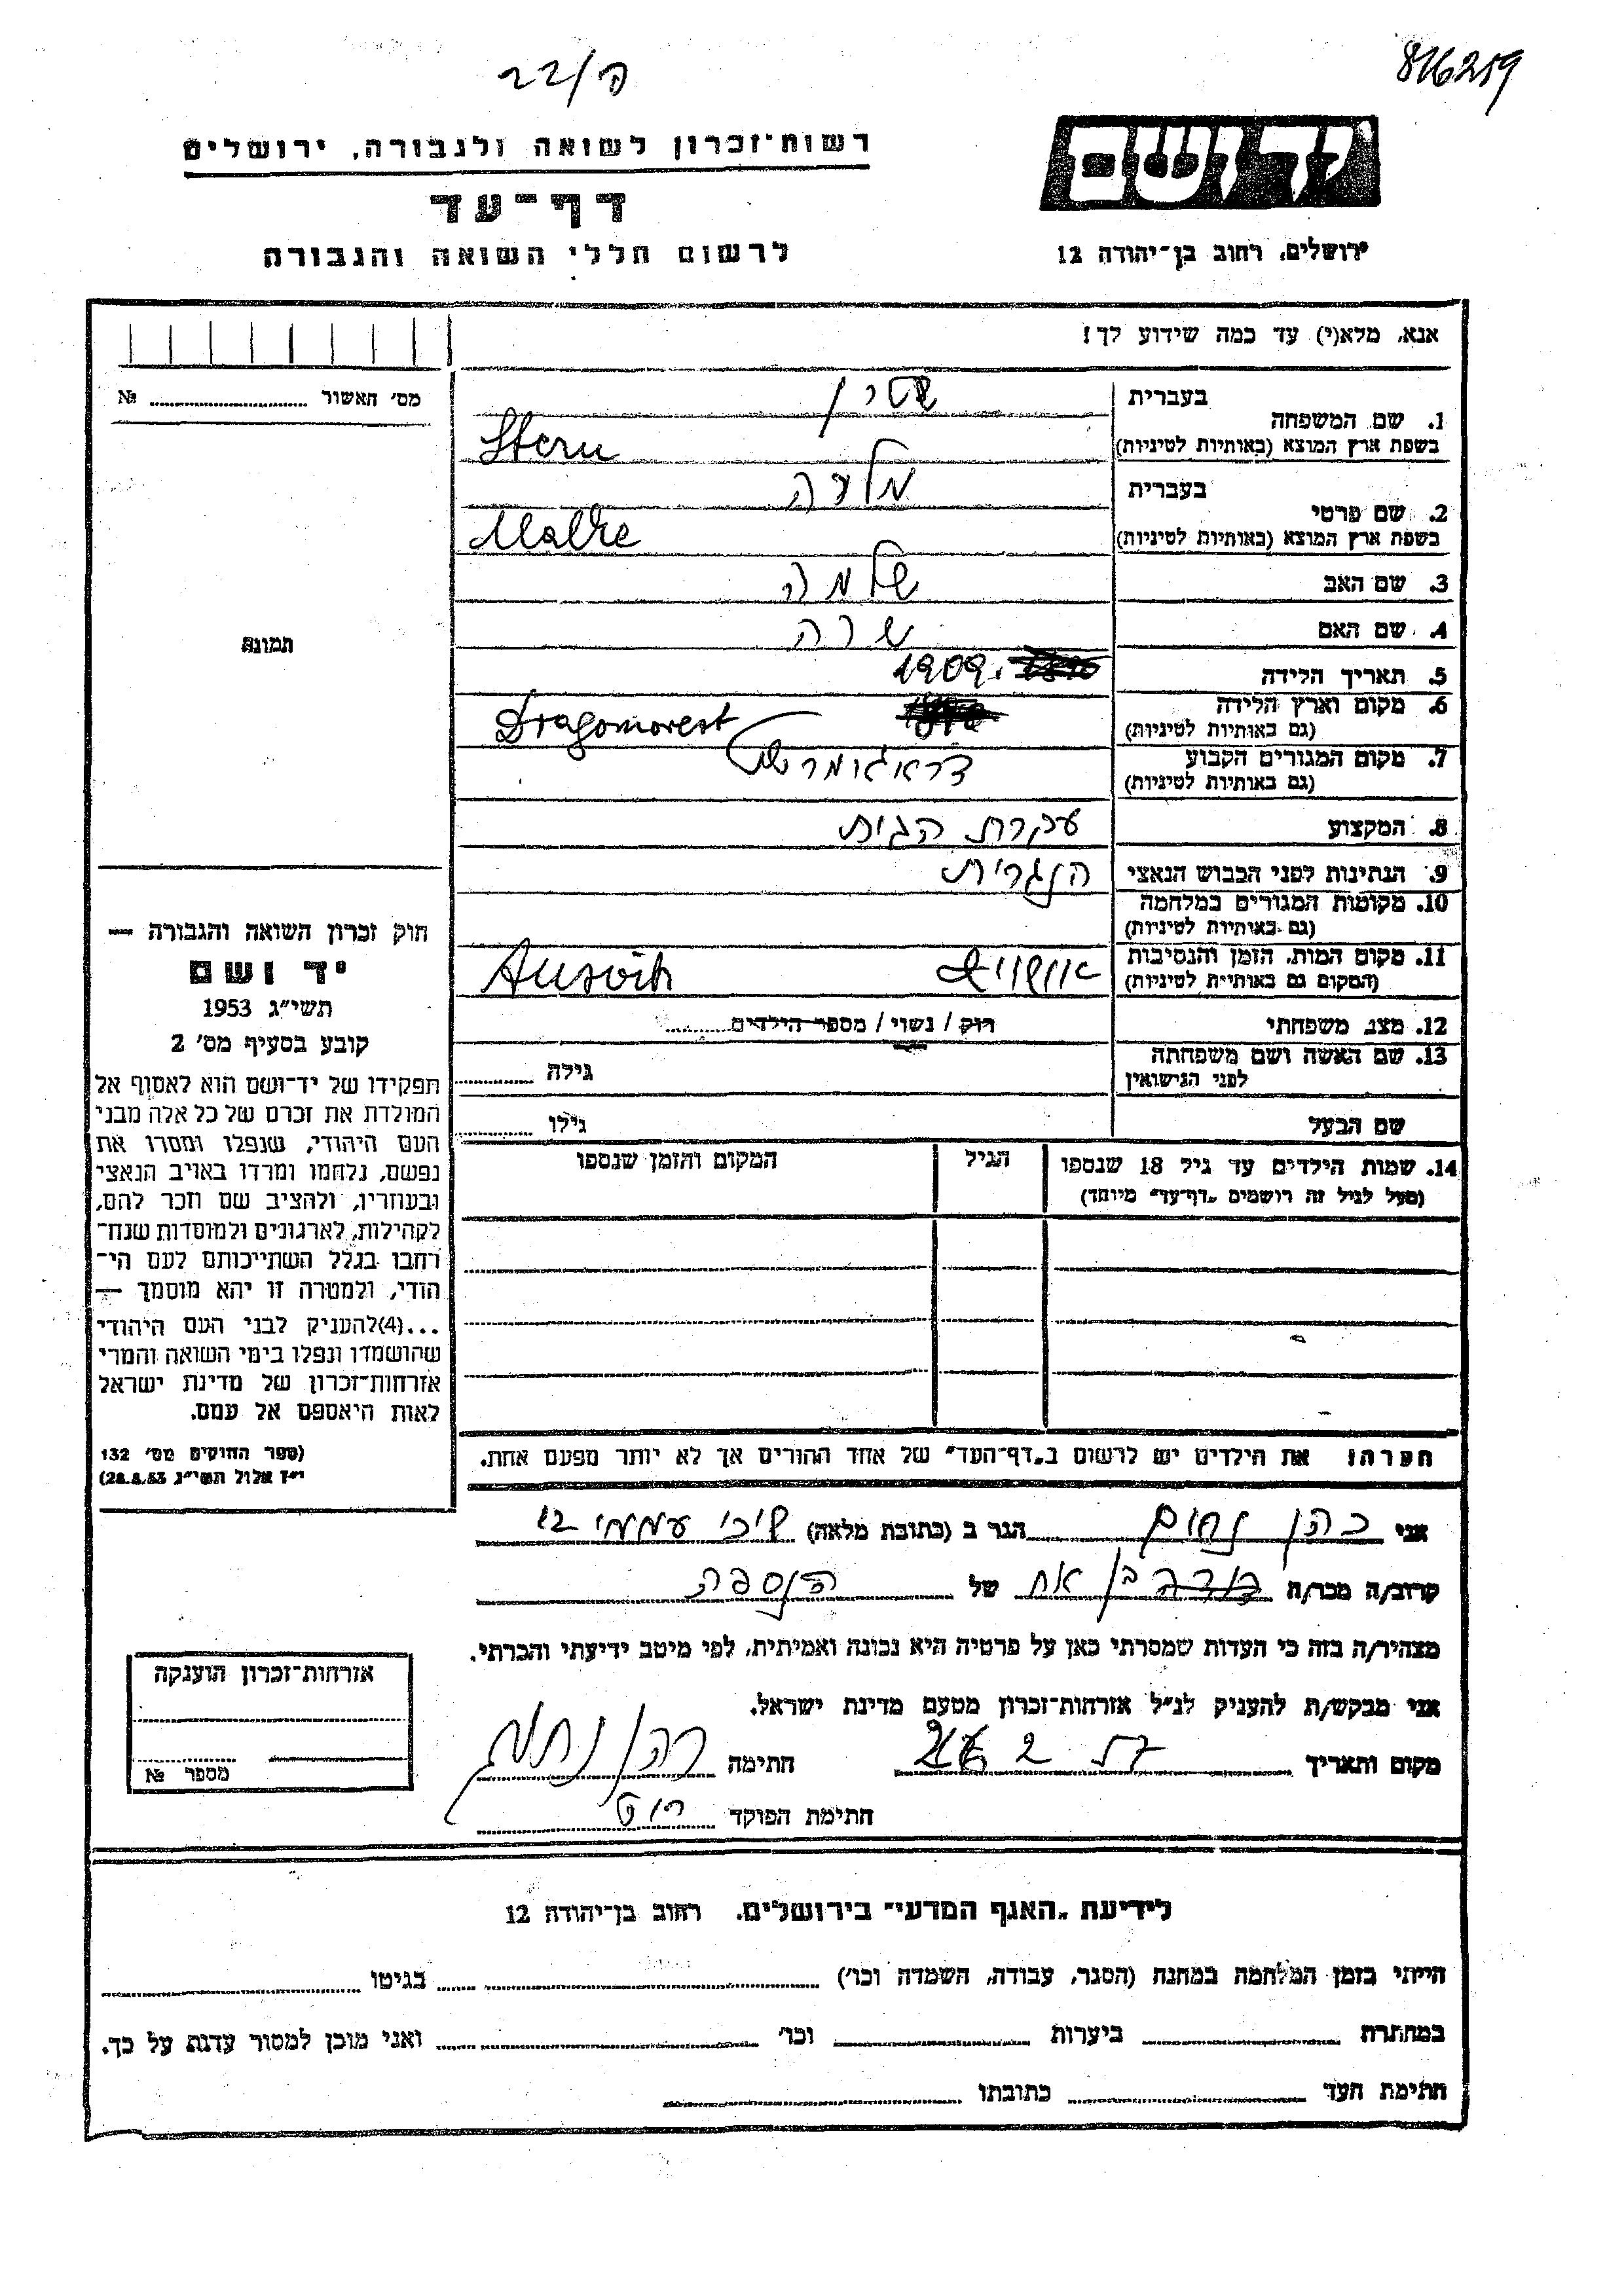 816259
ה/22
יד ושם
רשות־זכרון לשואה ולגבורה, ירושלים
דף־עד
לרשום חללי השואה והגבורה
ירושלים, רחוב בן־יהודה 12
אנא, מלא(י) עד כמה שידוע לך!
מס׳ האשור № ........
תמונה
1. שם המשפחה
בעברית שטרן
בשפת ארץ המוצא (באותיות לטיניות) Stern
2. שם פרטי
בעברית מלכה
בשפת ארץ המוצא (באותיות לטיניות) Malke
3. שם האב שלמה
4. שם האם שרה
5. תאריך הלידה 1909
6. מקום וארץ הלידה
(גם באותיות לטיניות) Dragomorest
7. מקום המגורים הקבוע דראגומרשט
(גם באותיות לטיניות)
8. המקצוע עקרת הבית
9. הנתינות לפני הכבוש הנאצי הונגרית
10. מקומות המגורים במלחמה
(גם באותיות לטיניות)
11. מקום המות, הזמן והנסיבות אושוויץ Ausvith
(המקום גם באותיות לטיניות)
12. מצב משפחתי רוק / נשוי / מספר הילדים ........
13. שם האשה ושם משפחתה
לפני הנישואין גילה ........
שם הבעל גילו ........
14. שמות הילדים עד גיל 18 שנספו הגיל המקום והזמן שנספו
(מעל לגיל זה רושמים „דף־עד״ מיוחד)
חוק זכרון השואה והגבורה —
יד ושם
תשי״ג 1953
קובע בסעיף מס׳ 2
תפקידו של יד־ושם הוא לאסוף אל
המולדת את זכרם של כל אלה מבני
העם היהודי, שנפלו ומסרו את
נפשם, נלחמו ומרדו באויב הנאצי
ובעוזריו, ולהציב שם וזכר להם,
לקהילות, לארגונים ולמוסדות שנח־
רחבו בגלל השתייכותם לעם הי־
הודי, ולמטרה זו יהא מוסמך —
...(4)להעניק לבני העם היהודי
שהושמדו ונפלו בימי השואה והמרי
אזרחות־זכרון של מדינת ישראל
לאות היאספם אל עמם.
(ספר החוקים מס׳ 132
י״ז אלול תשי״ג 28.8.53)
הערה: את הילדים יש לרשום ב„דף־העד״ של אחד ההורים אך לא יותר מפעם אחת.
אני כהן נחום הגר ב (כתובת מלאה) שיכון עממי 12
קרוב/ה מכר/ה בן אח של הנספה
מצהיר/ה בזה כי העדות שמסרתי כאן על פרטיה היא נכונה ואמיתית, לפי מיטב ידיעתי והכרתי.
אני מבקש/ת להעניק לנ״ל אזרחות־זכרון מטעם מדינת ישראל.
מקום ותאריך חתימה כהן נחום
חתימת הפוקד
אזרחות־זכרון הוענקה
מספר №
לידיעת „האגף המדעי״ בירושלים, רחוב בן־יהודה 12
הייתי בזמן המלחמה במחנה (הסגר, עבודה, השמדה וכו׳) ........ בגיטו ........
במחתרת ........ ביערות ........ וכו׳ ........ ואני מוכן למסור עדות על כך.
חתימת העד ........ כתובתו ........